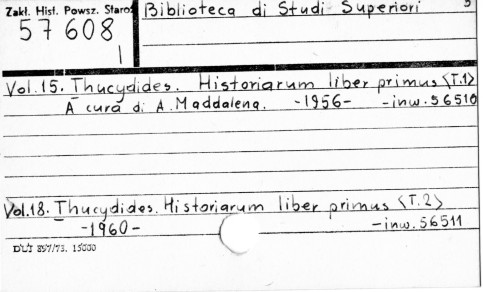 Zakł. Hist. Powsz. Staroż
Biblioteca di Studi Superiori
57608
1
Vol. 15. Thucydides. Historiarum liber primus <T.1>
A cura di A. Maddalena. -1956- -inw. 56510
Vol. 18. Thucydides. Historiarum liber primus <T.2>
-1960- -inw. 56511
DUJ 897/73. 15000